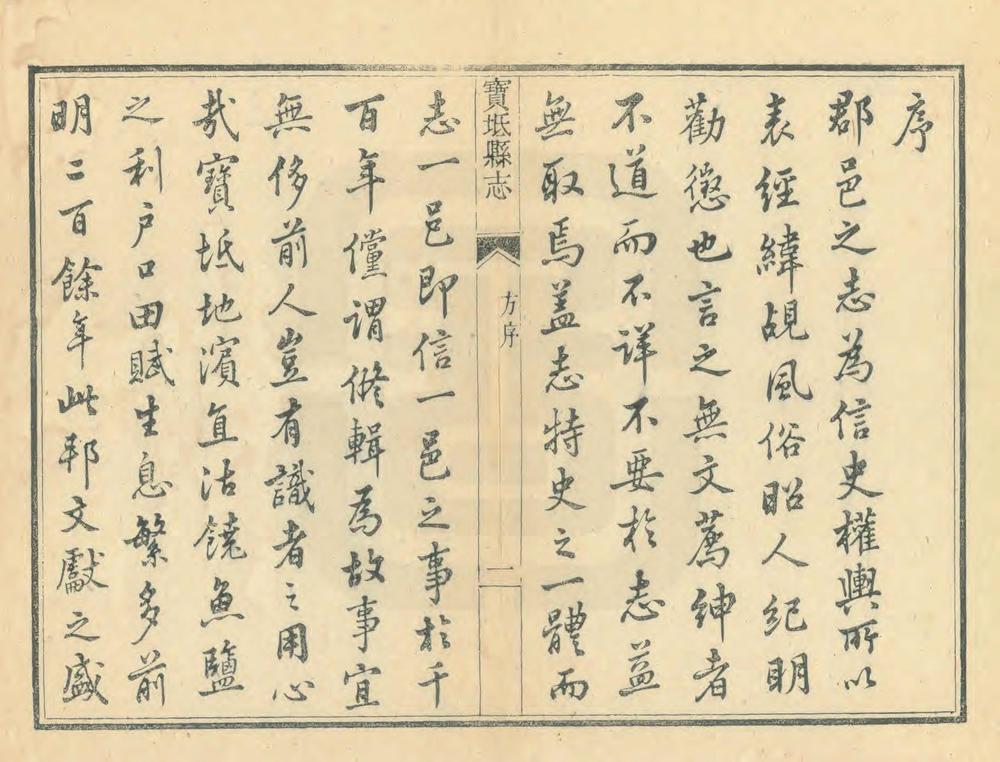 序
郡邑之志為信史權輿所以
表經緯覘風俗昭人紀明
勸懲也言之無文薦紳者
不道而不詳不要於志益
無取焉蓋志特史之一體而
寶坻縣志
方序
一
志一邑即信一邑之事於千
百年儻謂脩輯為故事宜
無侈前人豈有識者之用心
哉寶坻地濱直沽饒魚鹽
之利户口田賦生息繁多前
明二百餘年此邦文獻之盛